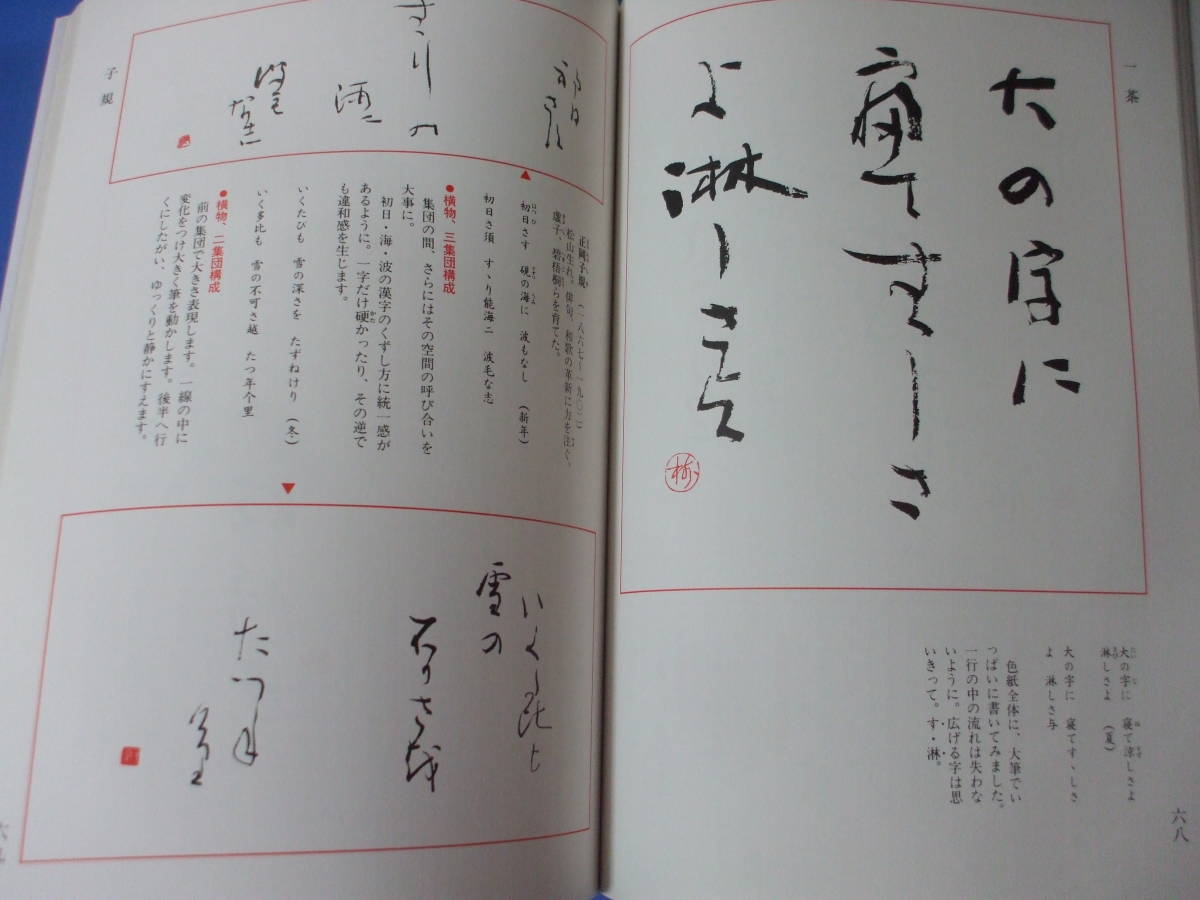 一茶
大の字に
寝てすゞしさ
よ淋しさ与
大の字に 寝て涼しさよ
淋しさよ (夏)
大の字に 寝てすゝしさ
よ 淋しさ与
色紙全体に、大筆でい
っぱいに書いてみました。
一行の中の流れは失わな
いように。広げる字は思
いきって。す・淋。
六八
初日さ須
すゝりの
海二
波毛
な志
子規
正岡子規 (一八六七〜一九〇二)
松山生れ。俳句、和歌の革新に力を注ぐ。
虚子、碧梧桐らを育てた。
初日さす 硯の海に 波もなし (新年)
初日さ須 すゝり能海二 波毛な志
●横物、三集団構成
集団の間、さらにはその空間の呼び合いを
大事に。
初日・海・波の漢字のくずし方に統一感が
あるように。一字だけ硬かったり、その逆で
も違和感を生じます。
いくたびも 雪の深さを たずねけり (冬)
いく多比も 雪の不可さ越 たつ年个里
●横物、二集団構成
前の集団で大きさ表現します。一線の中に
変化をつけ大きく筆を動かします。後半へ行
くにしたがい、ゆっくりと静かにすえます。
いく多比も
雪の
不可さ越
たつ年
个里